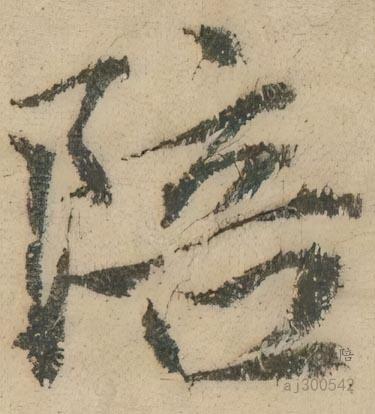 陪
陪
aj300542